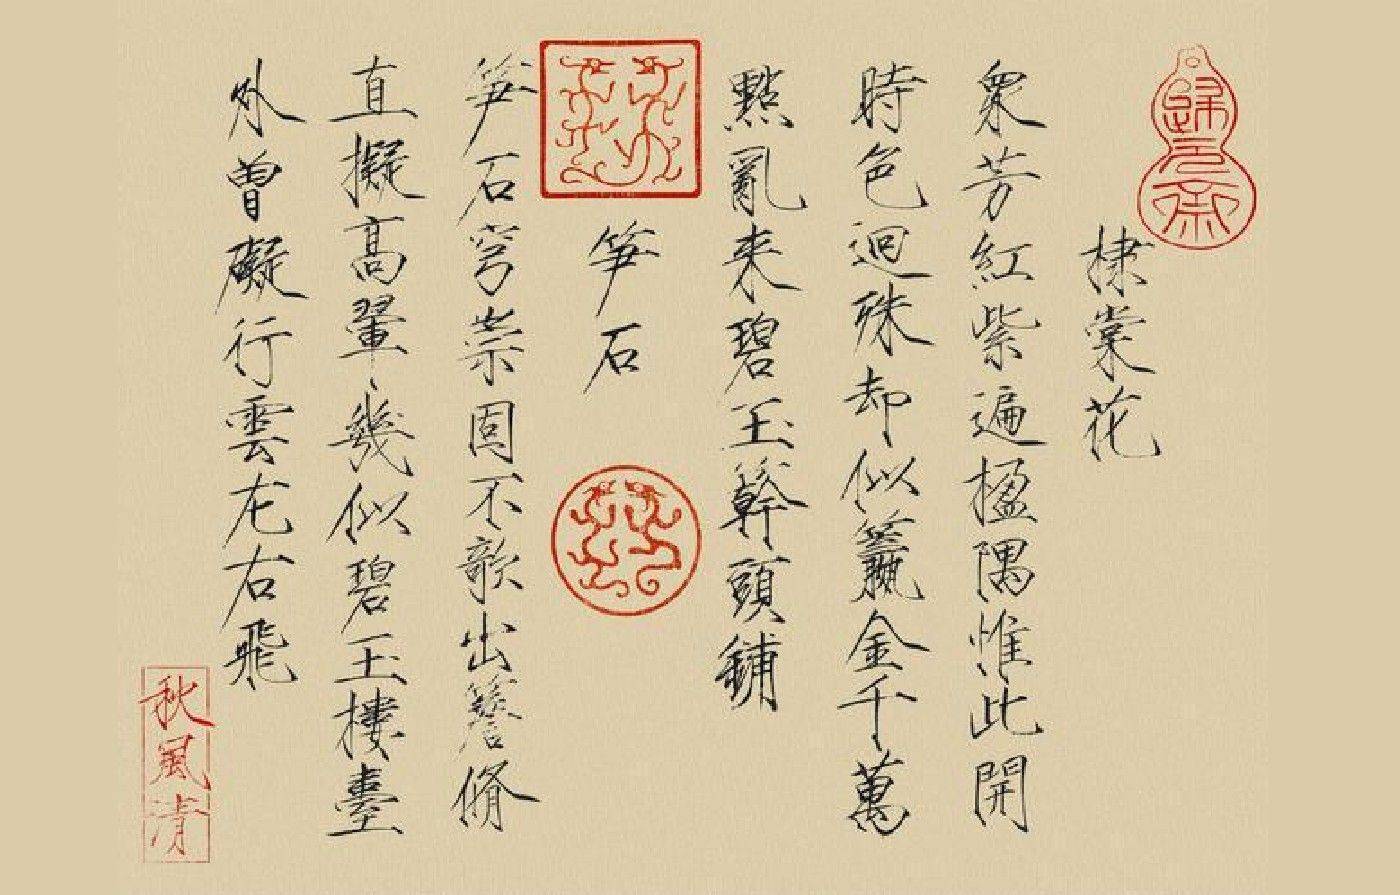 棣棠花
衆芳紅紫遍楹隅惟此開
時色逈殊却似籯金千萬
點亂來碧玉簳頭鋪
笋石
笋石穹崇固不欹出簷脩
直擬高翬幾似碧玉樓臺
外曾礙行雲左右飛
秋風清